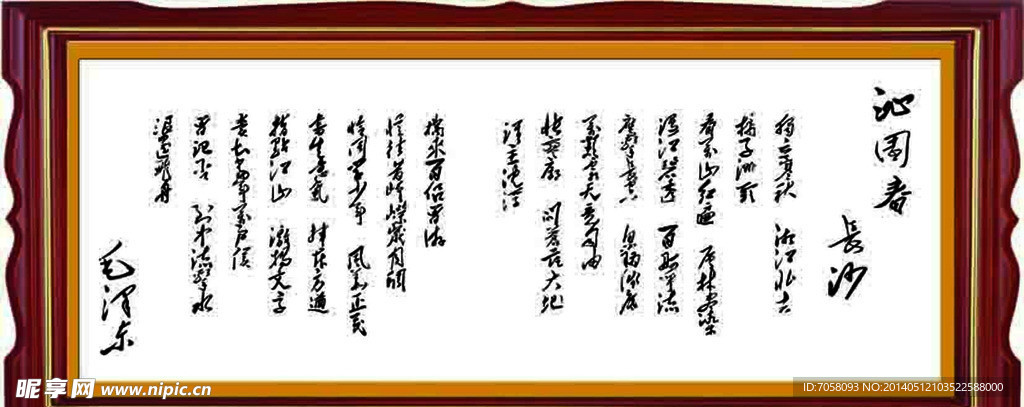 沁园春
长沙
独立寒秋 湘江北去
橘子洲头
看万山红遍 层林尽染
漫江碧透 百舸争流
鹰击长空 鱼翔浅底
万类霜天竞自由
怅寥廓 问苍茫大地
谁主沉浮
携来百侣曾游
忆往昔峥嵘岁月稠
恰同学少年 风华正茂
书生意气 挥斥方遒
指点江山 激扬文字
粪土当年万户侯
曾记否 到中流击水
浪遏飞舟
毛泽东
昵享网 www.nipic.cn
ID:7058093 NO:20140512103522588000